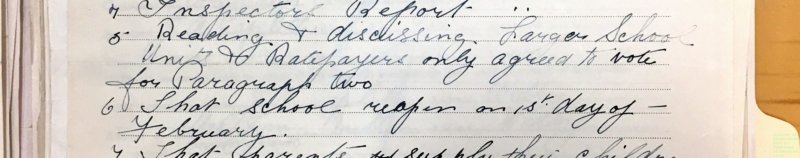 4 Inspectors Report "
5 Reading & discussing Larger School
Unit & Ratepayers only agreed to vote
for Paragraph two
6 That school reopen on 1st day of –
February.
7 That parents supply their children